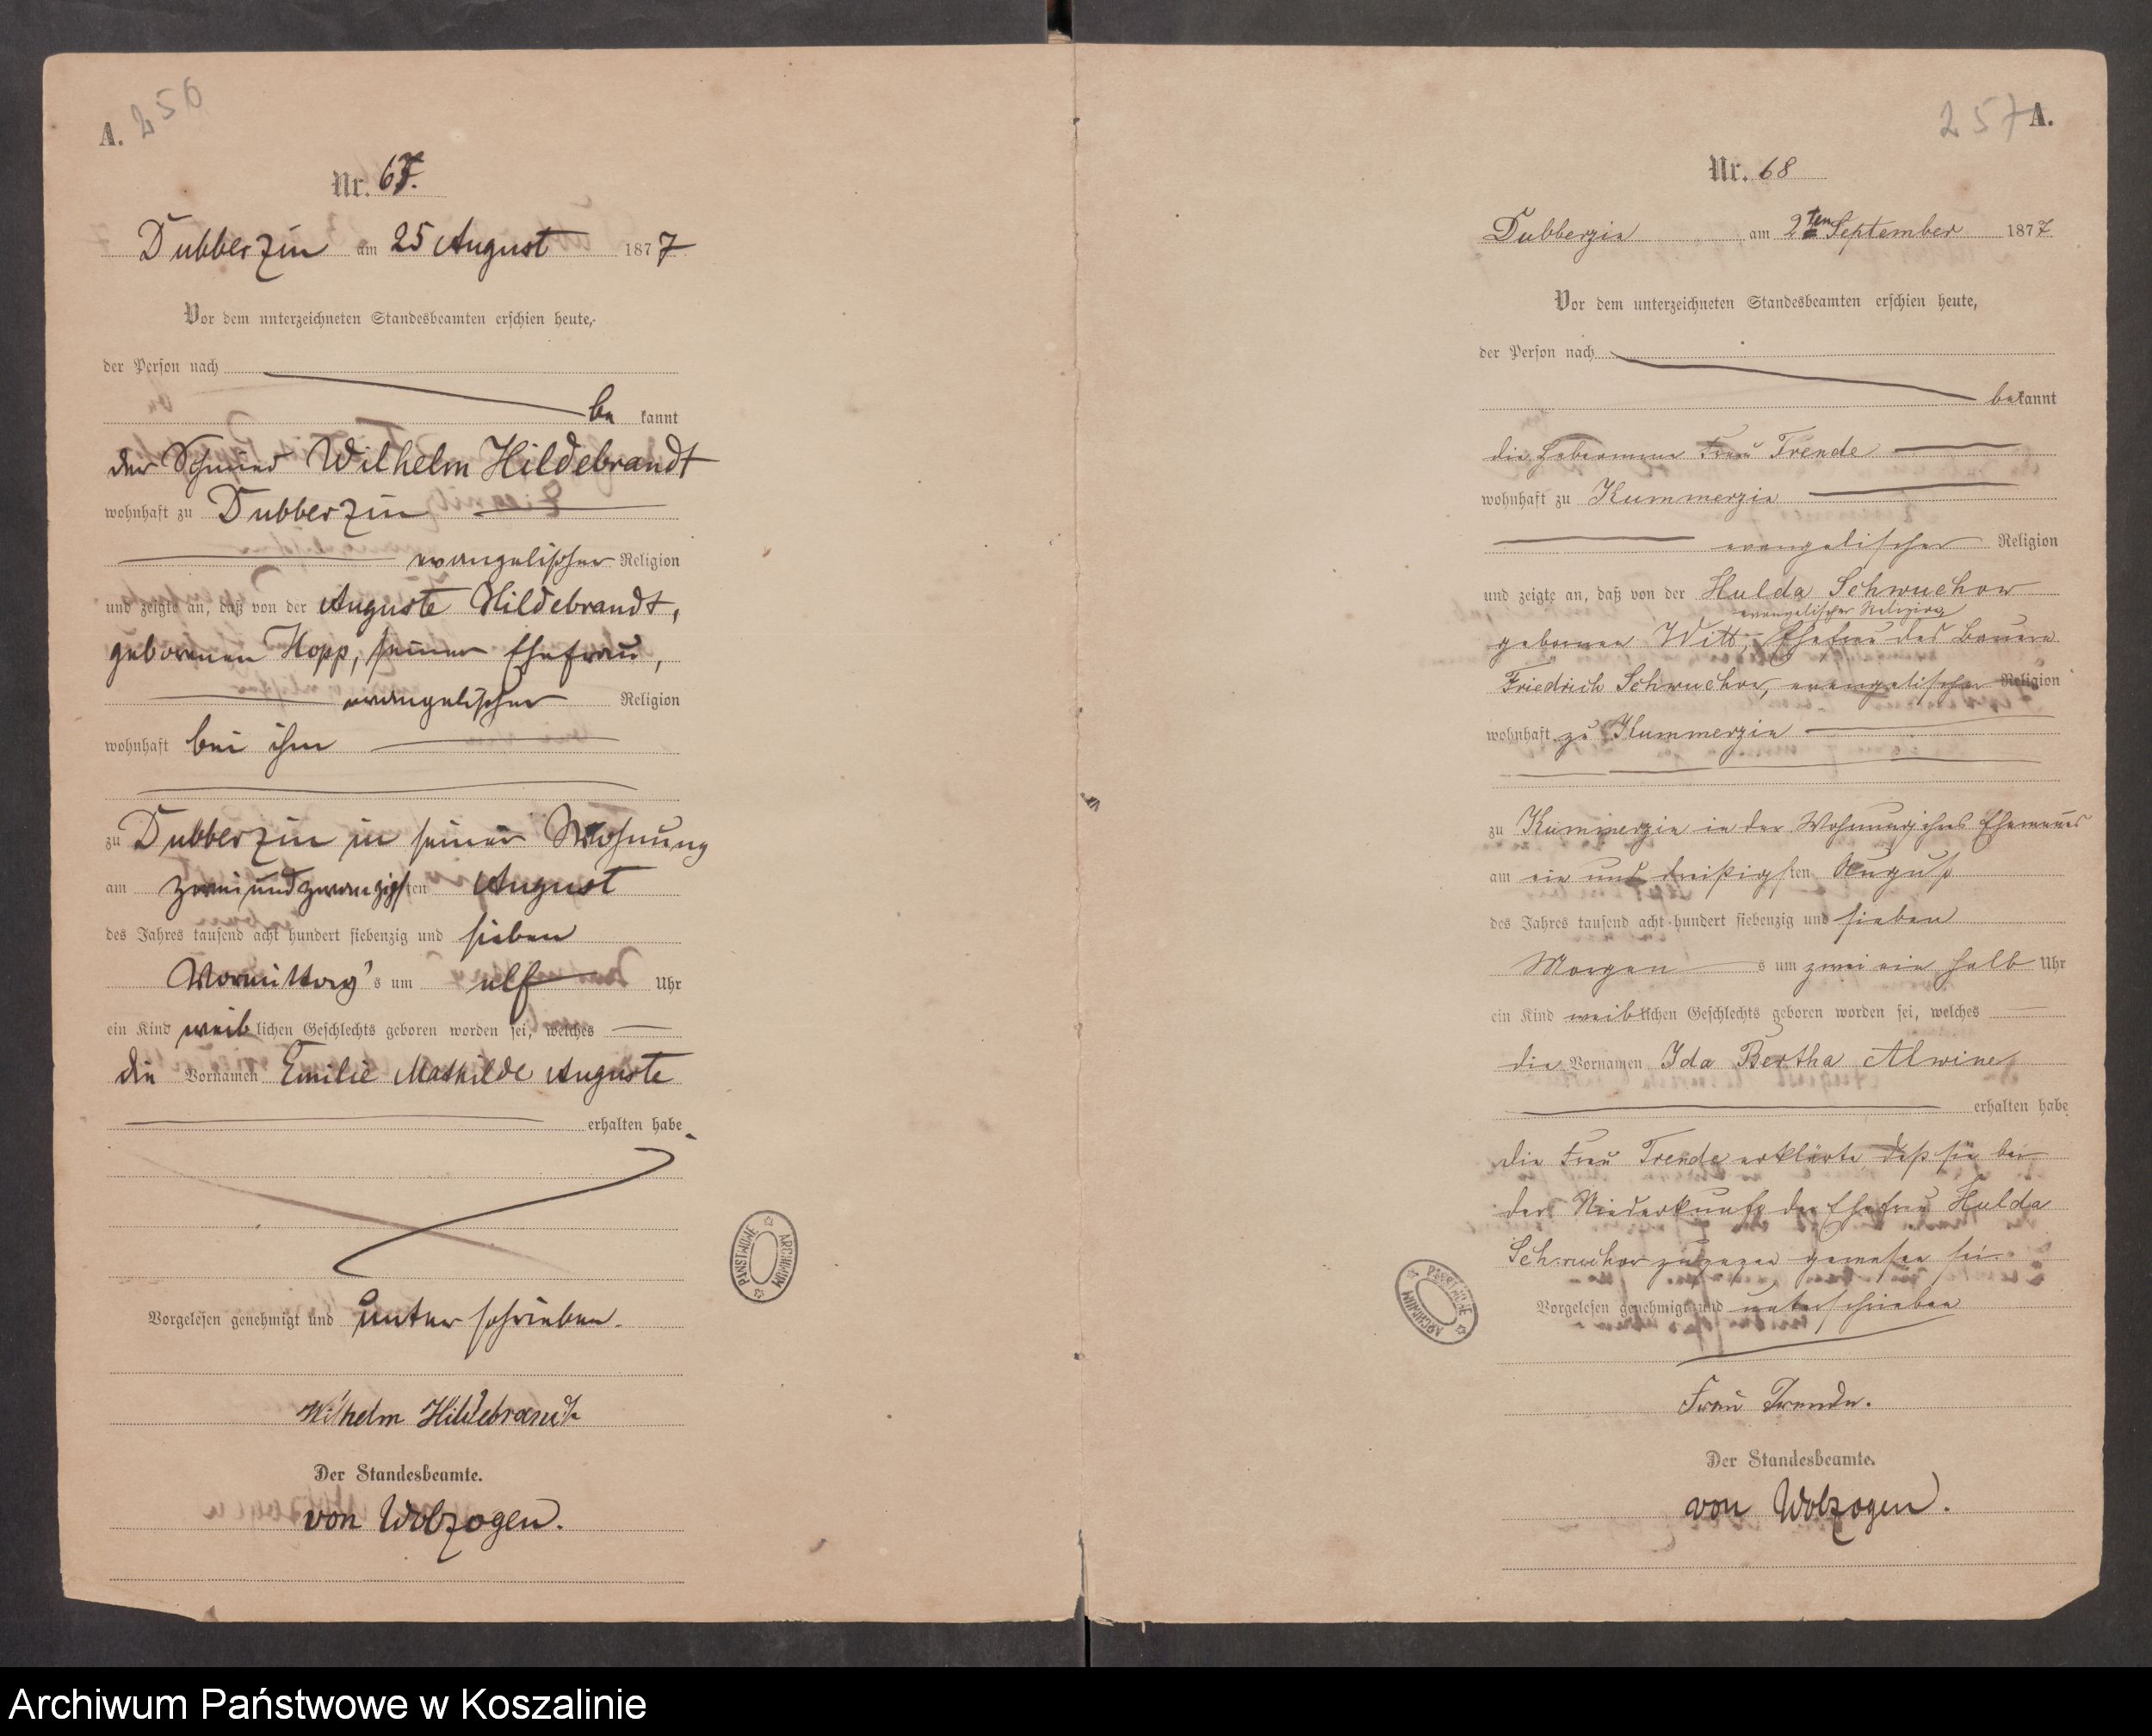 A. 256
Nr. 67.
Dubberzin am 25 August 1877
Vor dem unterzeichneten Standesbeamten erschien heute,
der Person nach
be kannt
der Wilhelm Hildebrandt
wohnhaft zu Dubberzin
evangelischer Religion
und zeigte an, daß von der Auguste Hildebrandt,
geborenen Hopp, seiner Ehefrau,
evangelischer Religion
wohnhaft bei ihm
zu Dubberzin in seiner Wohnung
am zweiundzwanzigsten August
des Jahres tausend acht hundert siebenzig und sieben
Vormittag's s um elf Uhr
ein Kind weiblichen Geschlechts geboren worden sei, welches
die Vornamen Emilie Mathilde Auguste
erhalten habe.
Vorgelesen genehmigt und unterschrieben.
Wilhelm Hildebrandt
Der Standesbeamte.
von Wolzogen.
ARCHIWUM PAŃSTWOWE
257 A.
Nr. 68
Dubberzin am 2ten September 1877
Vor dem unterzeichneten Standesbeamten erschien heute,
der Person nach
bekannt
die Hebamme Frau Trende
wohnhaft zu Kummerzin
evangelischer Religion
und zeigte an, daß von der Hulda Schwuchow
evangelischer Religion
gebornen Witt, Ehefrau des Bauern
Friedrich Schwuchow, evangelischer Religion
wohnhaft zu Kummerzin
zu Kummerzin in der Wohnung ihres Ehemannes
am ein und dreißigsten August
des Jahres tausend acht hundert siebenzig und sieben
Morgen s um zwei ein halb Uhr
ein Kind weiblichen Geschlechts geboren worden sei, welches
die Vornamen Ida Bertha Alwine
erhalten habe
die Frau Trende erklärte daß sie bei
der Niederkunft der Ehefrau Hulda
Schwuchow zugegen gewesen sei.
Vorgelesen genehmigt und unterschrieben
Frau Trende.
Der Standesbeamte.
von Wolzogen.
ARCHIWUM PAŃSTWOWE
Archiwum Państwowe w Koszalinie